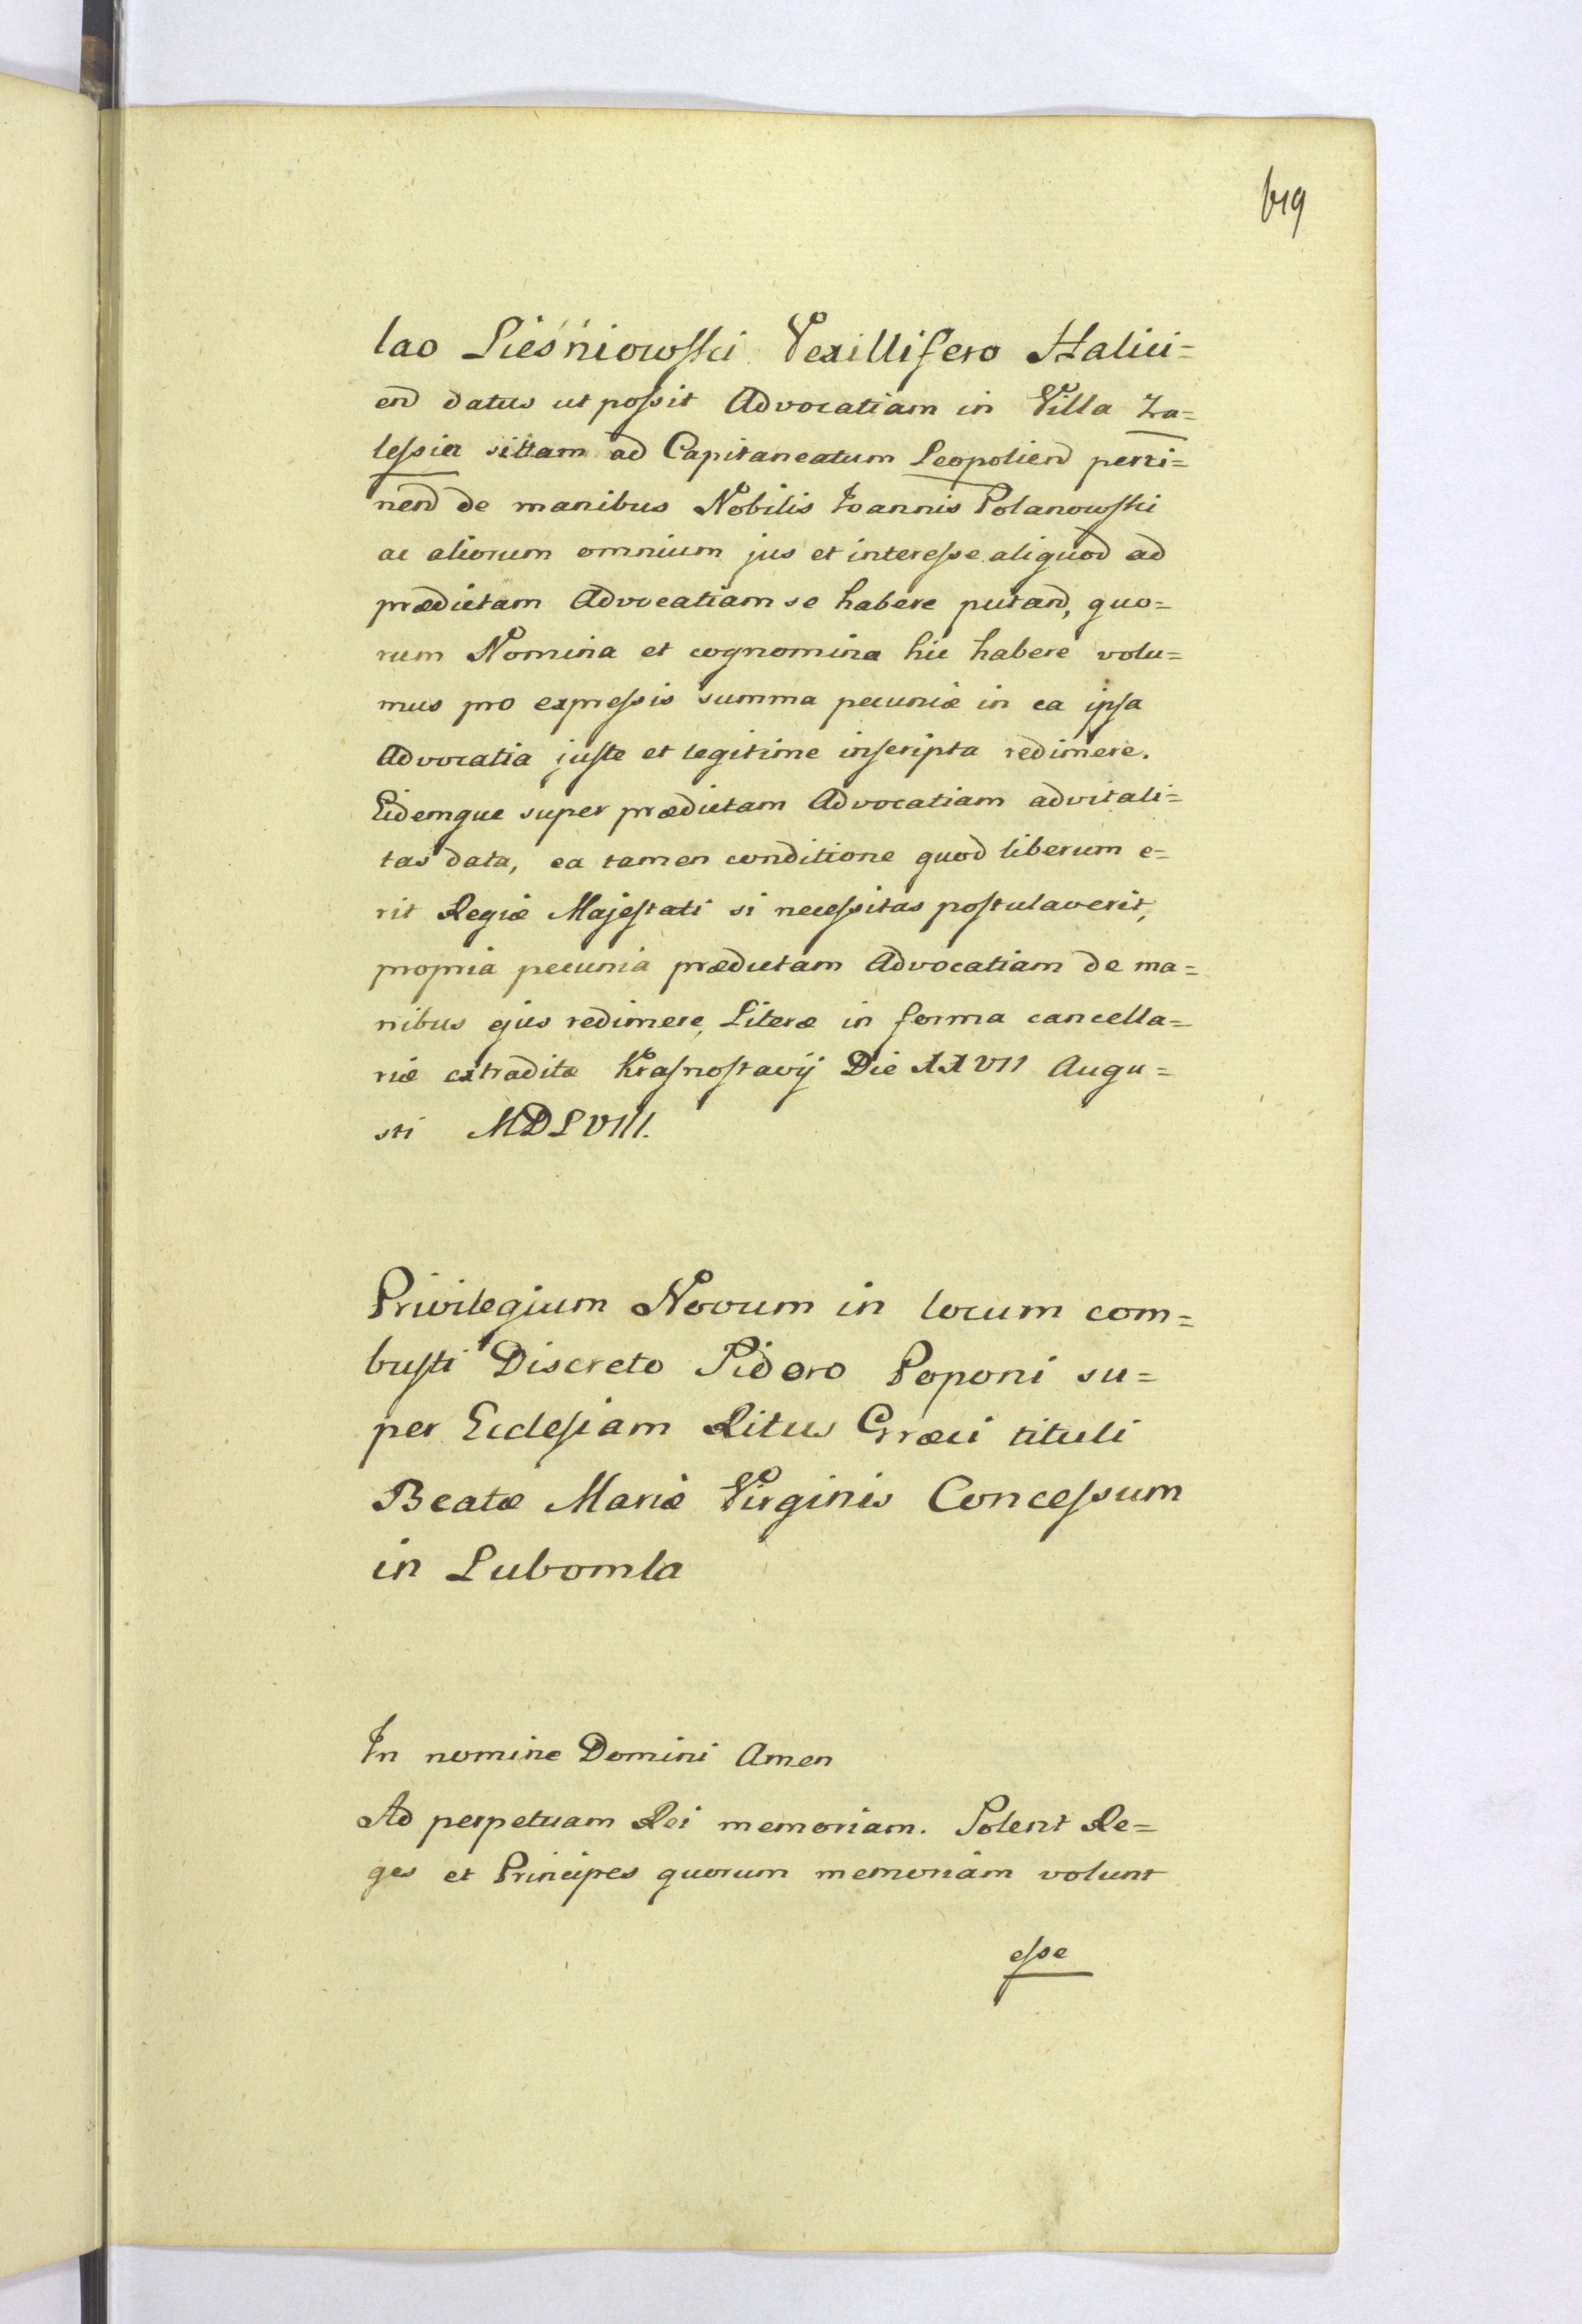 619
lao Lieśniowski Vexillifero Halici=
end datus ut possit Advocatiam in Villa Za=
lessie sittam ad Capitaneatum Leopoliend perti=
nend de manibus Nobilis Joannis Polanowski
ac aliorum omnium jus et interesse aliquod ad
prædictam Advocatiam se habere putand, quo=
rum Nomina et cognomina hic habere volu=
mus pro expressis summa pecuniæ in ea ipsa
Advocatia juste et legitime inscripta redimere.
Eidemque super prædictam Advocatiam advitali=
tas data, ea tamen conditione quod liberum e=
rit Regiæ Majestati si necessitas postulaverit,
propria pecunia prædictam Advocatiam de ma=
nibus ejus redimere, Literæ in forma cancella=
riæ extraditæ Krasnostavij Die XXVII Augu=
sti MDLVIII.
Privilegium Novum in locum com=
busti Discreto Sidoro Poponi su=
per Ecclesiam Ritus Græci tituli
Beatæ Mariæ Virginis Concessum
in Lubomla
In nomine Domini Amen
Ad perpetuam Rei memoriam. Solent Re=
ges et Principes quorum memoriam volunt
esse